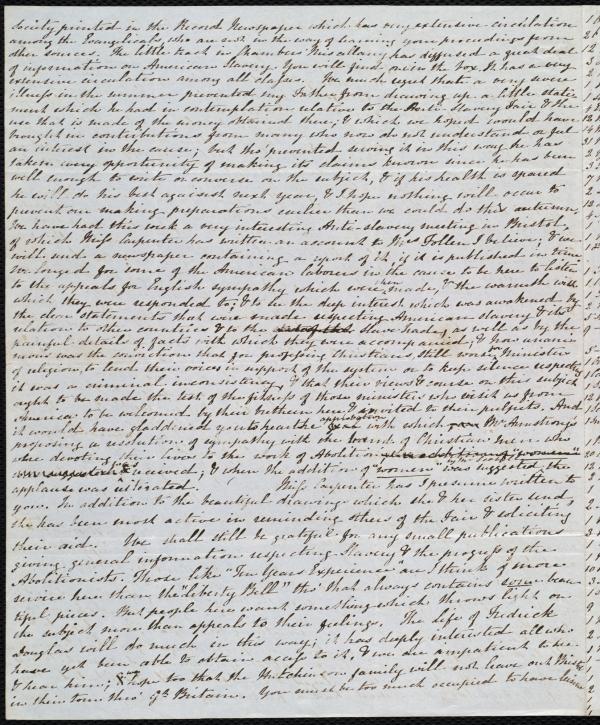 Society printed in the Record Newspaper which has very extensive circulation
among the Evangelicals, who are not in the way of learning your proceedings from
other sources. The little tract in Chambers' Miscellany has diffused a great deal
of information on American Slavery. You will find it in the box. It has a very
extensive circulation among all classes. We much regret that a very severe
illness in the summer prevented my Father from drawing up a little state-
ment which he had in contemplation relative to the Anti-Slavery Fair & the
use that is made of the money obtained there; & which we hoped would have
brought in contributions from many who now do not understand or feel
an interest in the cause; but tho' prevented serving it in this way, he has
taken every opportunity of making its claims known since he has been
well enough to write or converse on the subject, & if his health is spared
he will do his best against next year, & I hope nothing will occur to
prevent our making preparations earlier than we could do this autumn.
We have had this week a very interesting Anti-slavery meeting in Bristol,
of which Miss Carpenter has written an account to Mrs Follen I believe; & we
will send a newspaper containing a report of it, if it is published in time.
We longed for some of the American labourers in the cause to be here to listen
to the appeals for English sympathy which were then made, & the warmth with
which they were responded to; & to see the deep interest which was awakened by
the clear statements that were made respecting American slavery & its
relation to other countries & to the slave trade, as well as by the
painful details of facts with which they were accompanied; & how unani-
mous was the conviction that for professing Christians, still more for Ministers
of religion, to lend their voices in support of the system or to keep silence respecting
it was a criminal inconsistency, & that their views & course on this subject
ought to be made the test of the fitness of those ministers who visit us from
America to be welcomed by their brethren here & invited to their pulpits. And
it would have gladdened you to hear the applause with which Mr Armstrong's
proposing a resolution of sympathy with the band of Christian men who
were devoting their lives to the work of Abolition
was received; & when the addition of "women" was suggested the
applause was reiterated. Miss Carpenter has I presume written to
you. In addition to the beautiful drawings which she & her sister send,
she has been most active in reminding others of the Fair & soliciting
their aid. We shall still be grateful for any small publications
giving general information respecting Slavery & the progress of the
Abolitionists. Those like "Ten Years Experience" are I think of more
service here than the "Liberty Bell" tho' that always contains some beau-
tiful pieces. But people here want something which throws light on
the subject more than appeals to their feelings. The life of Fredrick
Douglas will do much in this way; it has deeply interested all who
have yet been able to obtain access to it, & we are impatient to see
& hear him; & hope too that the Hutchinson family will not leave out Bristol
in their tour thro' Gt Britain. You must be too much occupied to have